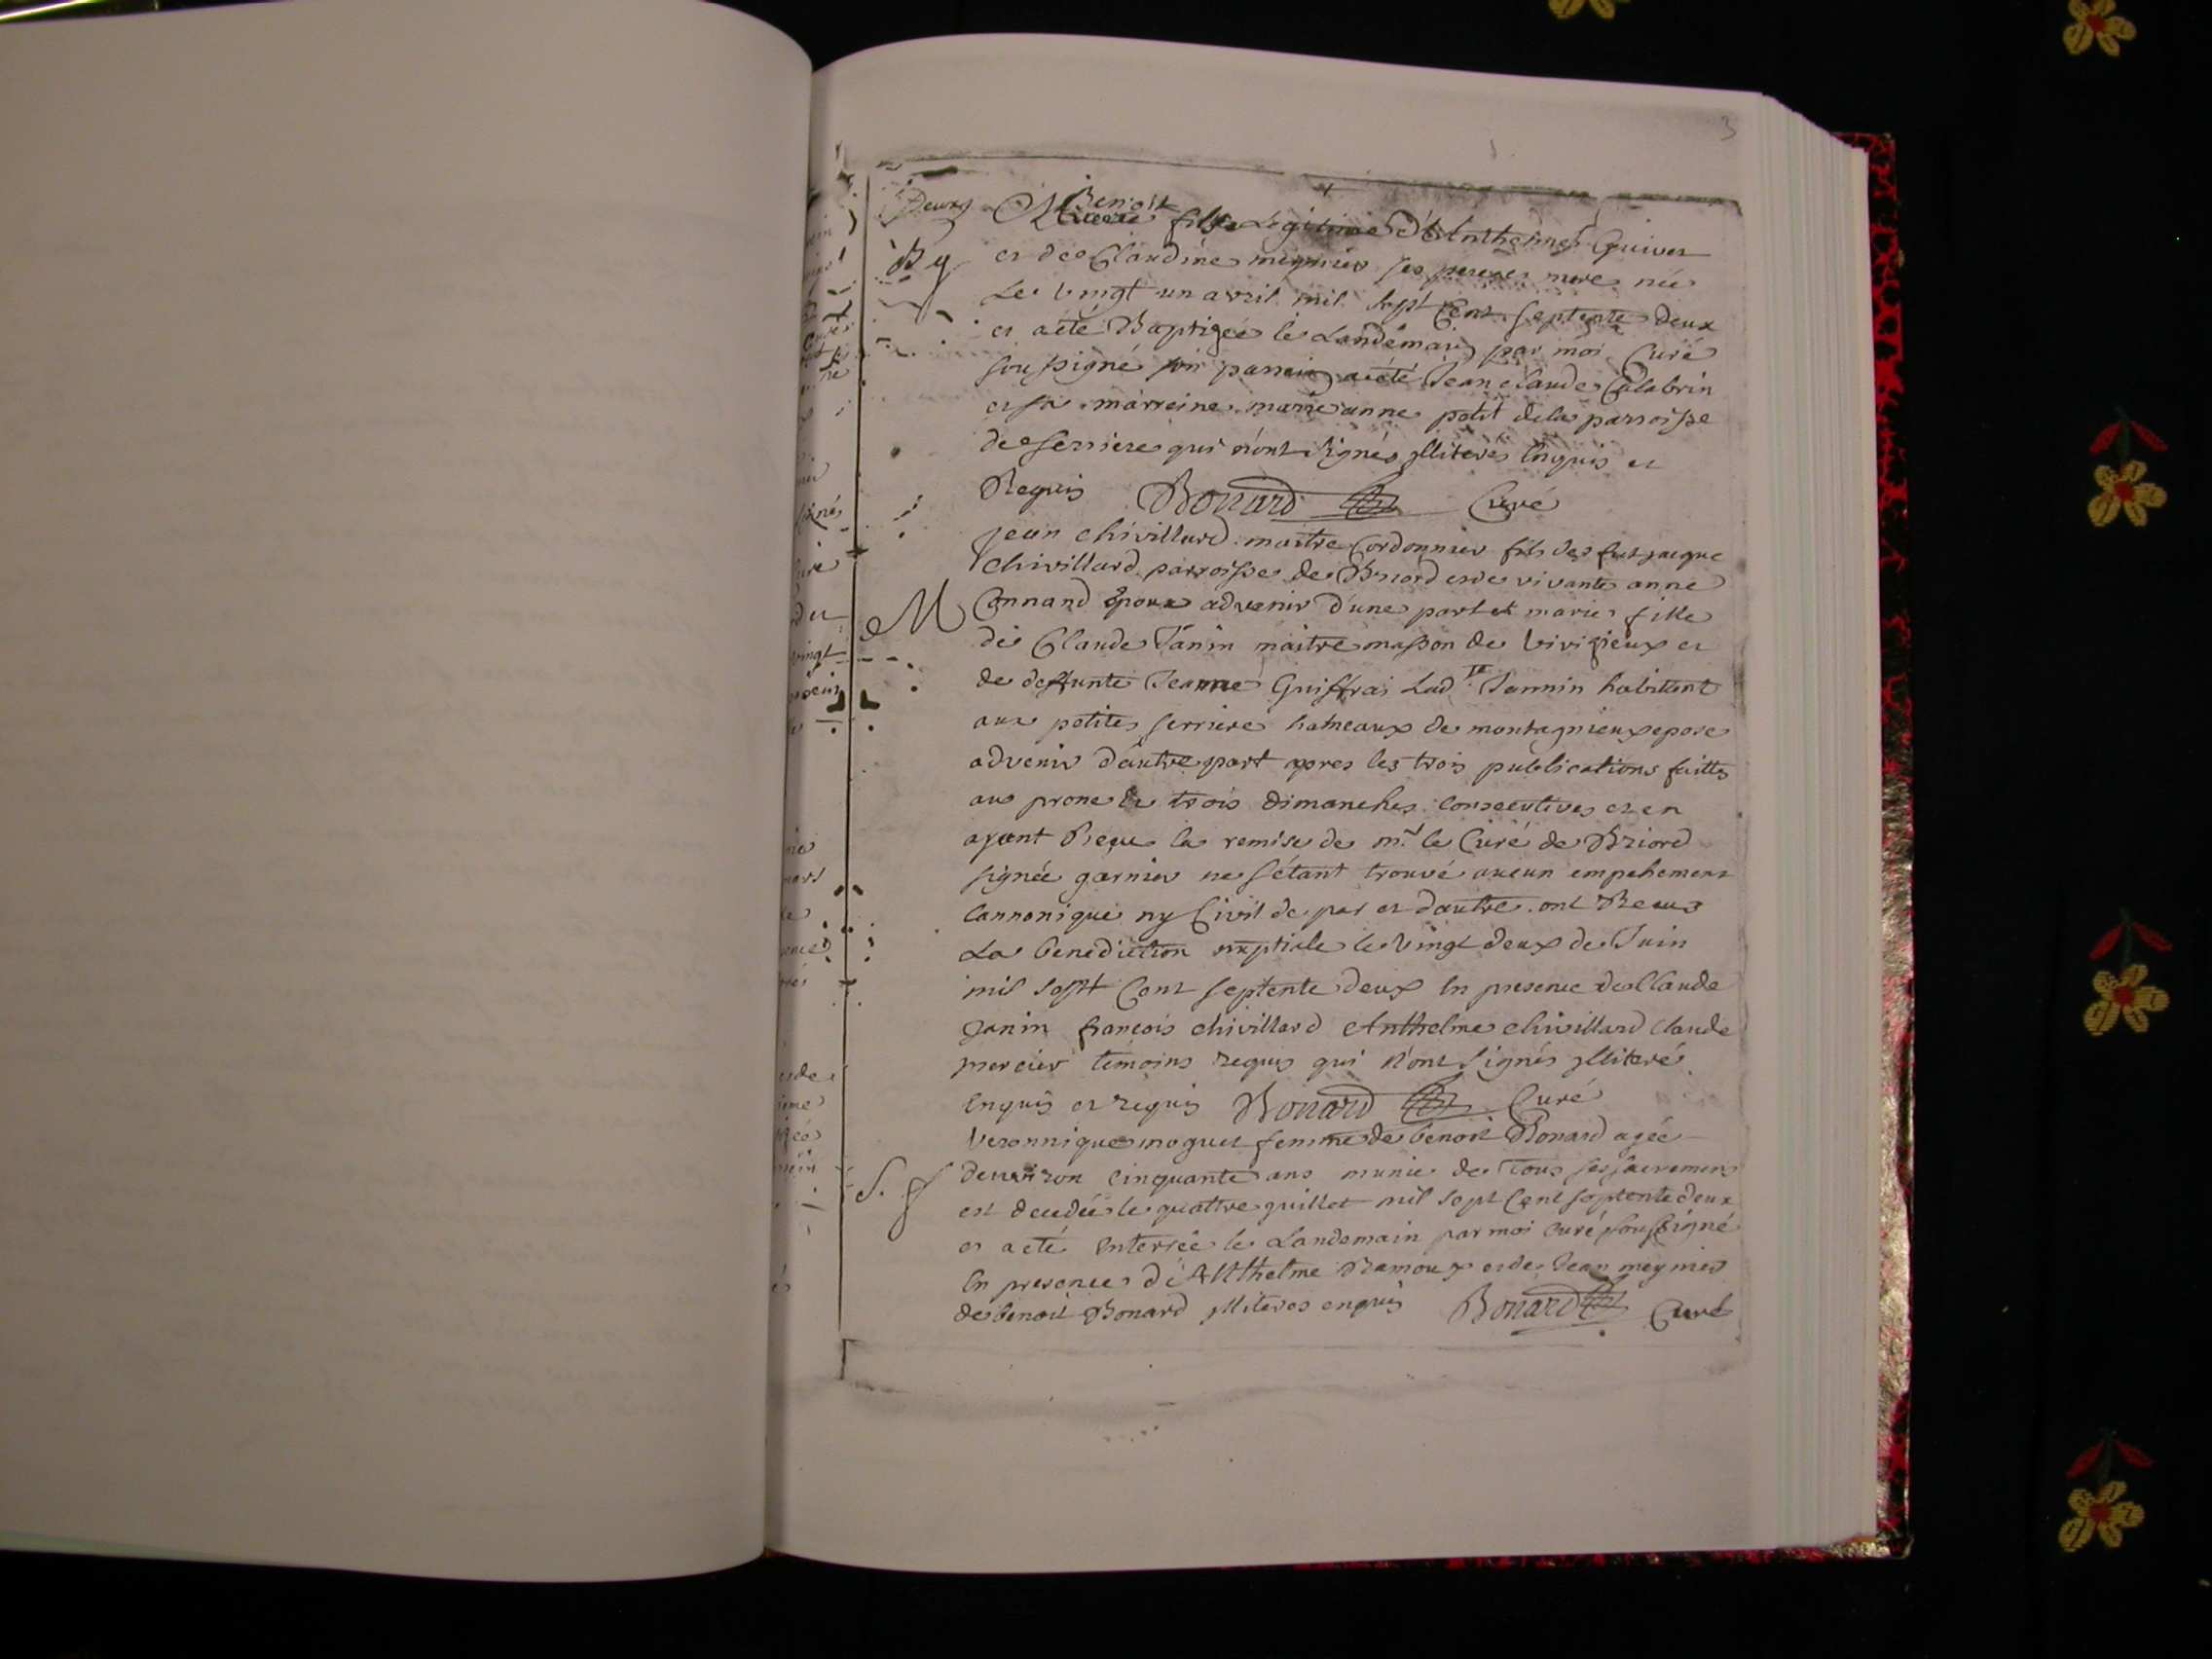 3
Benoit
fils Legitime d'Anthelme Guivet
et de Claudine meynier ses pere et mere née
Le vingt un avril mil sept Cent septente deux
et a été Baptizée le Landemain par moi Curé
soussigné son parrein a été Jean claude Calabrin
et sa marreine marie anne petit de la parroisse
de serriere qui n'ont signés illiterés Enquis et
Requis Bonard Curé
Jean chivillard maitre Cordonnier fils de fut jacque
chivillard parroisse de Briord et de vivante anne
M
Connand Epoux advenir d'une part et marie fille
de Claude Janin maitre masson de
de deffunte Jeanne Guiffrai Lad.te Jannin habittent
aux petites serriere hameaux de montagnieux epose
advenir d'autre part apres les trois publications faittes
au prone de trois dimanches consecutives et en
ayant Reçue la remise de mr le Curé de Briord
signée garnier ne s'étant trouvé aucun empehement
Cannonique ny Civil de par et d'autre ont Reçus
La benediction nuptiale le vingt deux de Juin
mil sept Cent septente deux En presence de Claude
Janin francois chivillard Anthelme chivillard Claude
mercier temoins requis qui n'ont signés illiteré
enquis et requis Bonard Curé
Veronnique moguet femme de benoit Bonard agée
S. f
denviron cinquante ans munie de tous ses sacremens
est decedée le quattre juillet mil sept Cent septente deux
et a eté Enterrée le Landemain par moi curé soussigné
En presence d'Anthelme Ramoux et de Jean meynier
de benoit Bonard illiteres enquis Bonard Curé